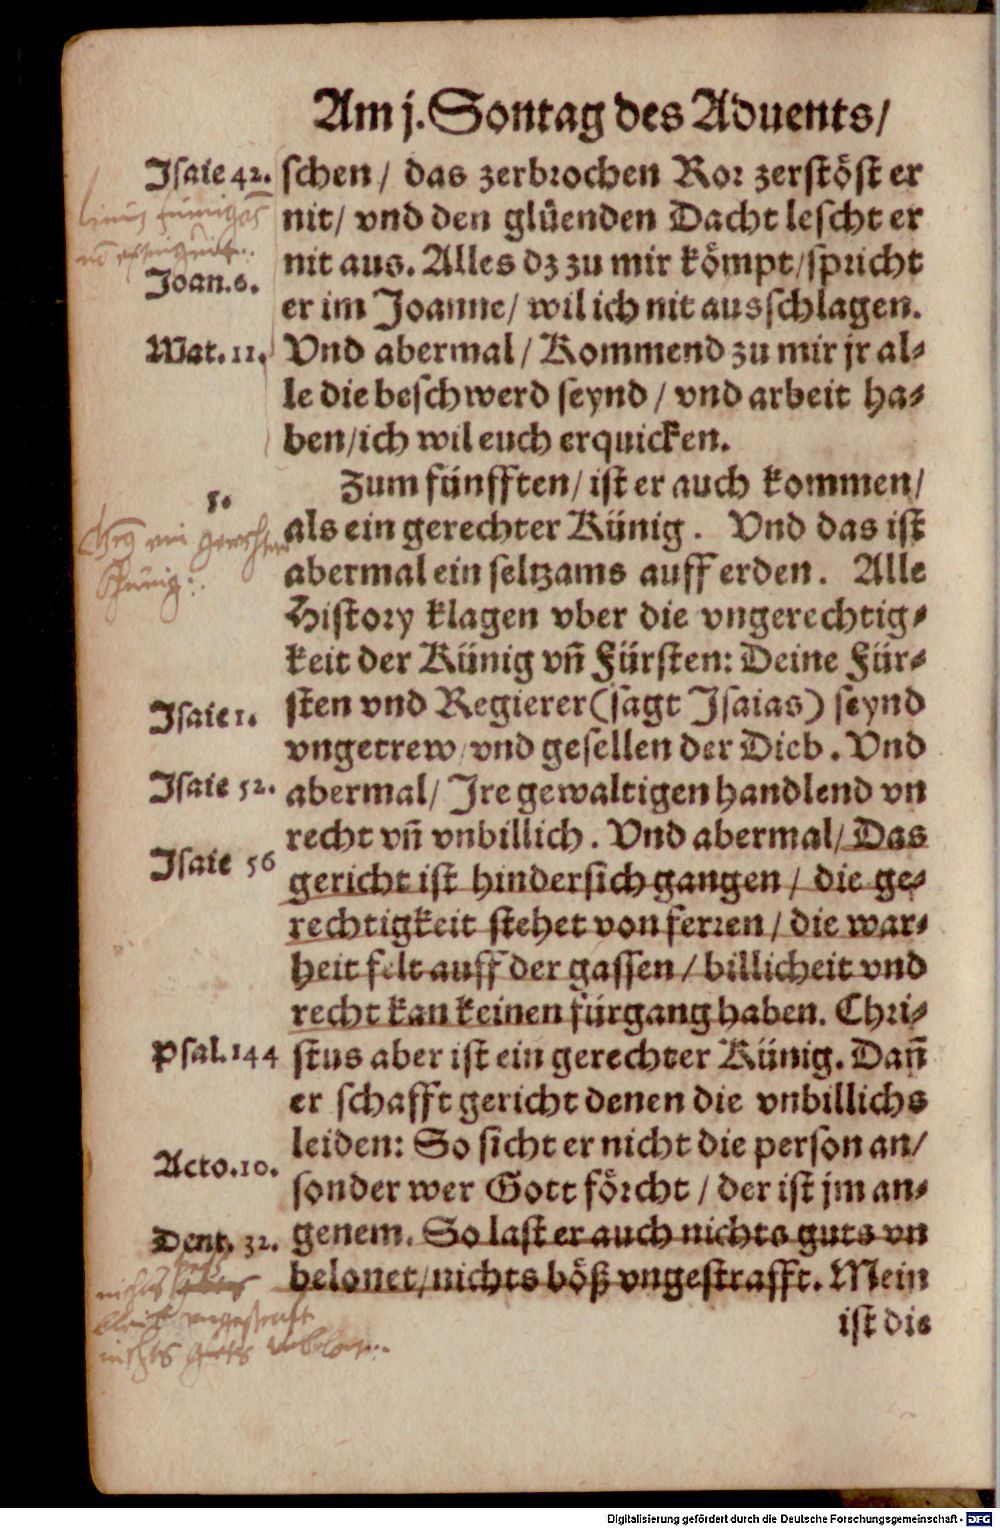 Am j. Sontag des Aduents/
Isaie 42.
schen/ das zerbrochen Ror zerstöst er
nit/ vnd den glüenden Dacht lescht er
Joan. 6.
nit aus. Alles dz zu mir kömpt/ spricht
er im Joanne/ wil ich nit ausschlagen.
Mat. 11.
Vnd abermal/ Kommend zu mir jr al⸗
le die beschwerd seynd/ vnd arbeit ha⸗
ben/ ich wil euch erquicken.
Zum fünfften/ ist er auch kommen/
5.
als ein gerechter Künig. Vnd das ist
abermal ein seltzams auff erden. Alle
History klagen vber die vngerechtig⸗
keit der Künig vñ Fürsten: Deine Für⸗
Isaie 1.
sten vnd Regierer (sagt Isaias) seynd
vngetrew/ vnd gesellen der Dieb. Vnd
Isaie 52.
abermal/ Ire gewaltigen handlend vn
recht vñ vnbillich. Vnd abermal/ Das
Isaie 56
gericht ist hindersich gangen/ die ge⸗
rechtigkeit stehet von ferren/ die war⸗
heit felt auff der gassen/ billicheit vnd
recht kan keinen fürgang haben. Chri⸗
Psal. 144
stus aber ist ein gerechter Künig. Dañ
er schafft gericht denen die vnbillichs
leiden: So sicht er nicht die person an/
Acto. 10.
sonder wer Gott förcht/ der ist jm an⸗
Deut. 32.
genem. So last er auch nichts guts vn
belonet/ nichts böß vngestrafft. Mein
nichts
bleibt vngestraft
nichts guets
ist die
Digitalisierung gefördert durch die Deutsche Forschungsgemeinschaft - DFG